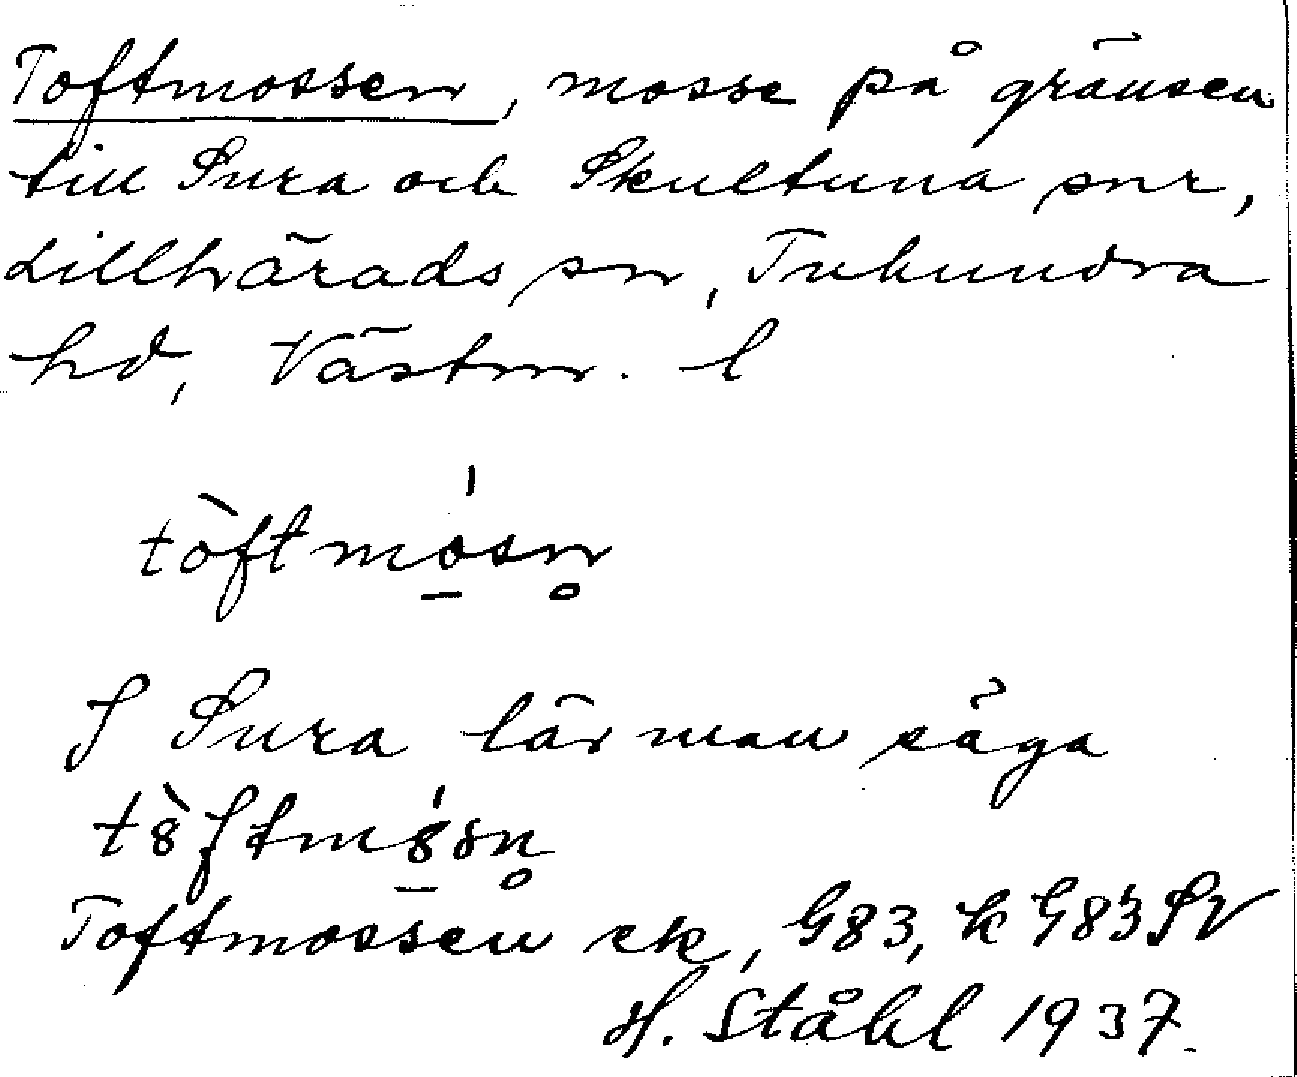 Toftmossen, mosse på gränsen
till Sura och Skultuna snr,
Lillhärads sn, Tuhundra
hd, Västm. l
tòftmósn̥
I Sura lär man säga
tòftmósn̥
Toftmossen ek, G83, k G83 SV
H. Ståhl 1937.